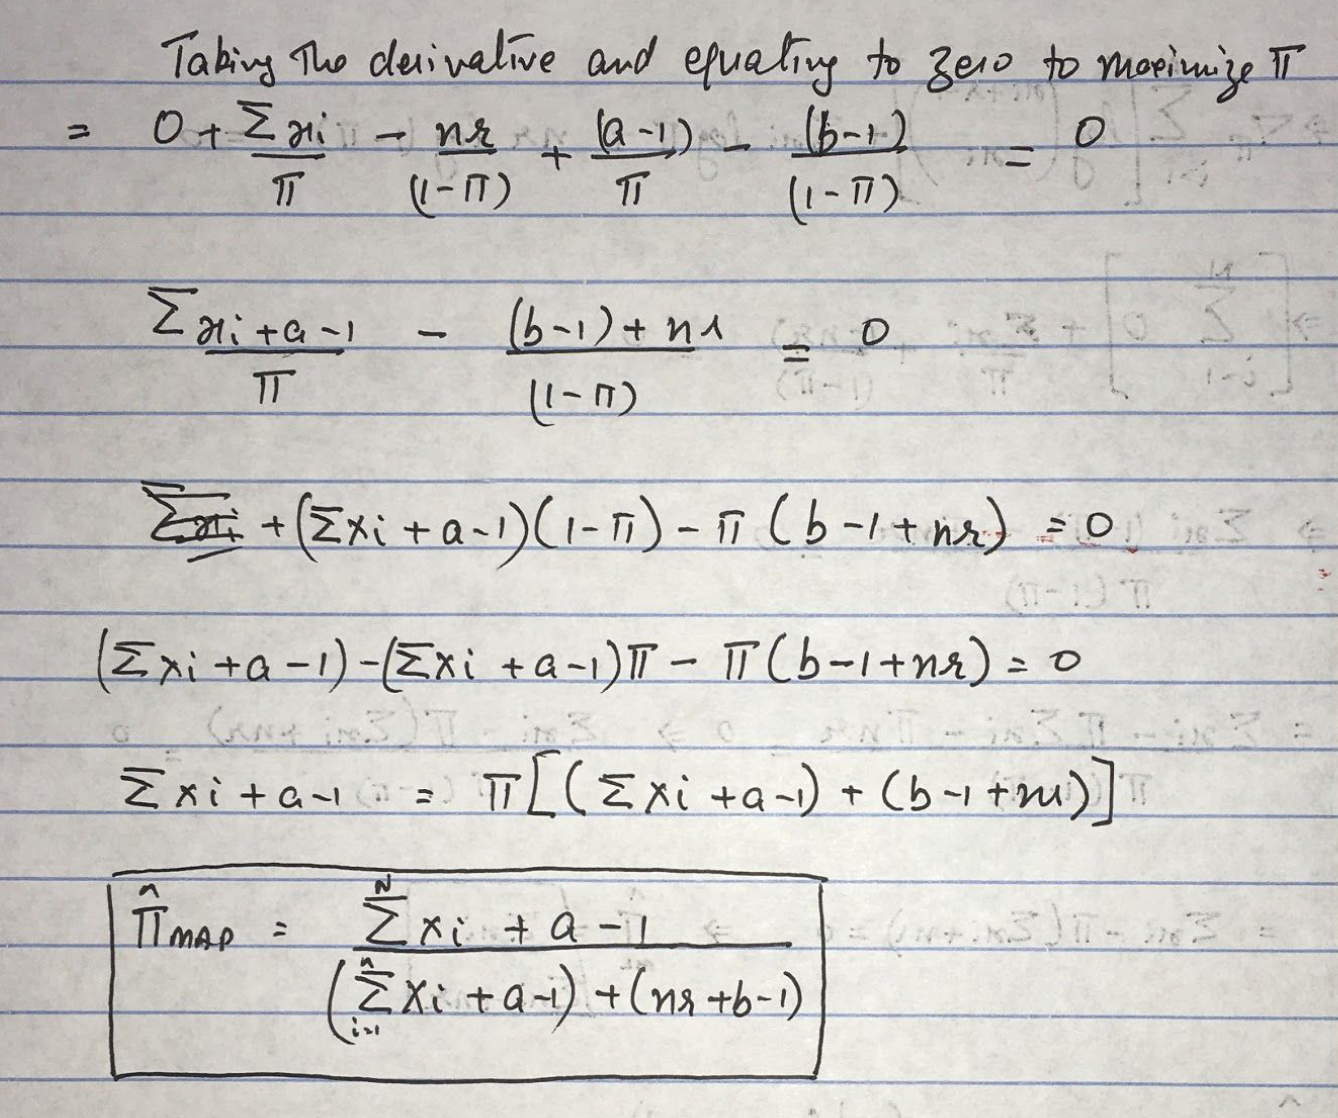 Taking The derivative and equating to zero to maximize π
= 0 + Σxi/π - nr/(1-π) + (a-1)/π - (b-1)/(1-π) = 0
Σxi+a-1/π - (b-1)+nr/(1-π) = 0
+(Σxi+a-1)(1-π)-π(b-1+nr) = 0
(Σxi+a-1)-(Σxi+a-1)π-π(b-1+nr) = 0
Σxi+a-1 = π[(Σxi+a-1)+(b-1+nr)]
π̂MAP = N Σxi+a-1/(n Σ i=1 xi+a-1)+(nr+b-1)